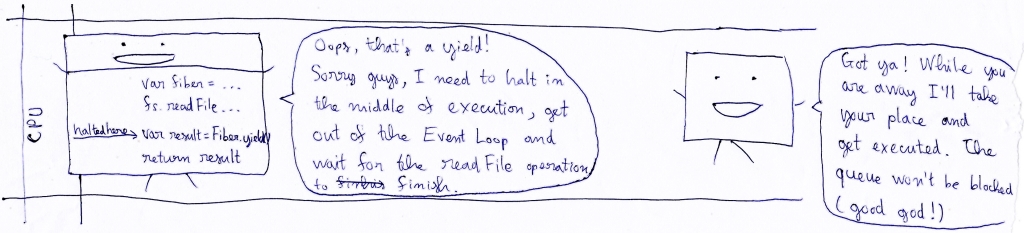 CPU
var fiber = ...
fs. readFile ...
halted here → var result = Fiber.yield()
return result
Oops, that's a yield!
Sorry guys, I need to halt in
the middle of execution, get
out of the Event Loop and
wait for the readFile operation
to finish.
Got ya! While you
are away I'll take
your place and
get executed. The
queue won't be blocked
(good god!)